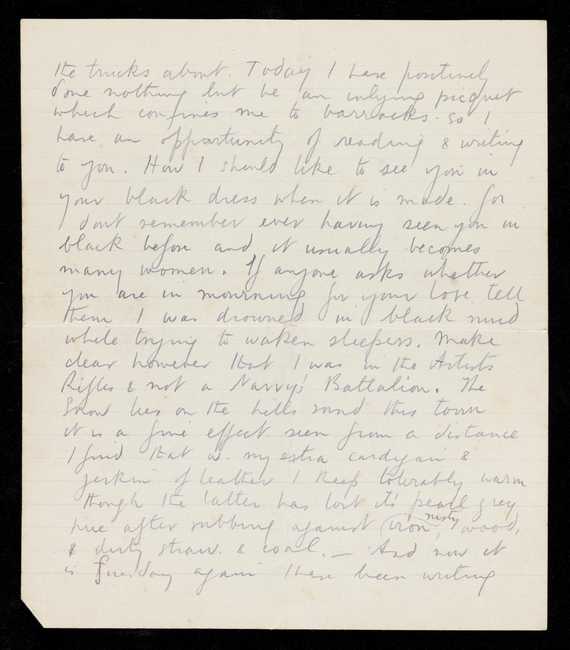 the trucks about. Today I have positively
done nothing but be an inlying picquet
which confines me to barracks. So I
have an opportunity of reading & writing
to you. How I should like to see you in
your black dress when it is made. for
I dont remember ever having seen you in
black before and it usually becomes
many women. If anyone asks whether
you are in mourning for your love tell
them I was drowned in black mud
while trying to waken sleepers. Make
clear however that I was in the Artists
Rifles & not a Navvys' Battalion. The
Snow lies on the hills round this town
it is a fine effect seen from a distance
I find that w. my extra cardigan &
jerkin of leather I keep tolerably warm
though the latter has lost its pearl grey
hue after rubbing against rusty iron, wood,
& dirty straw & coal. — And now it
is Tuesday again I have been writing